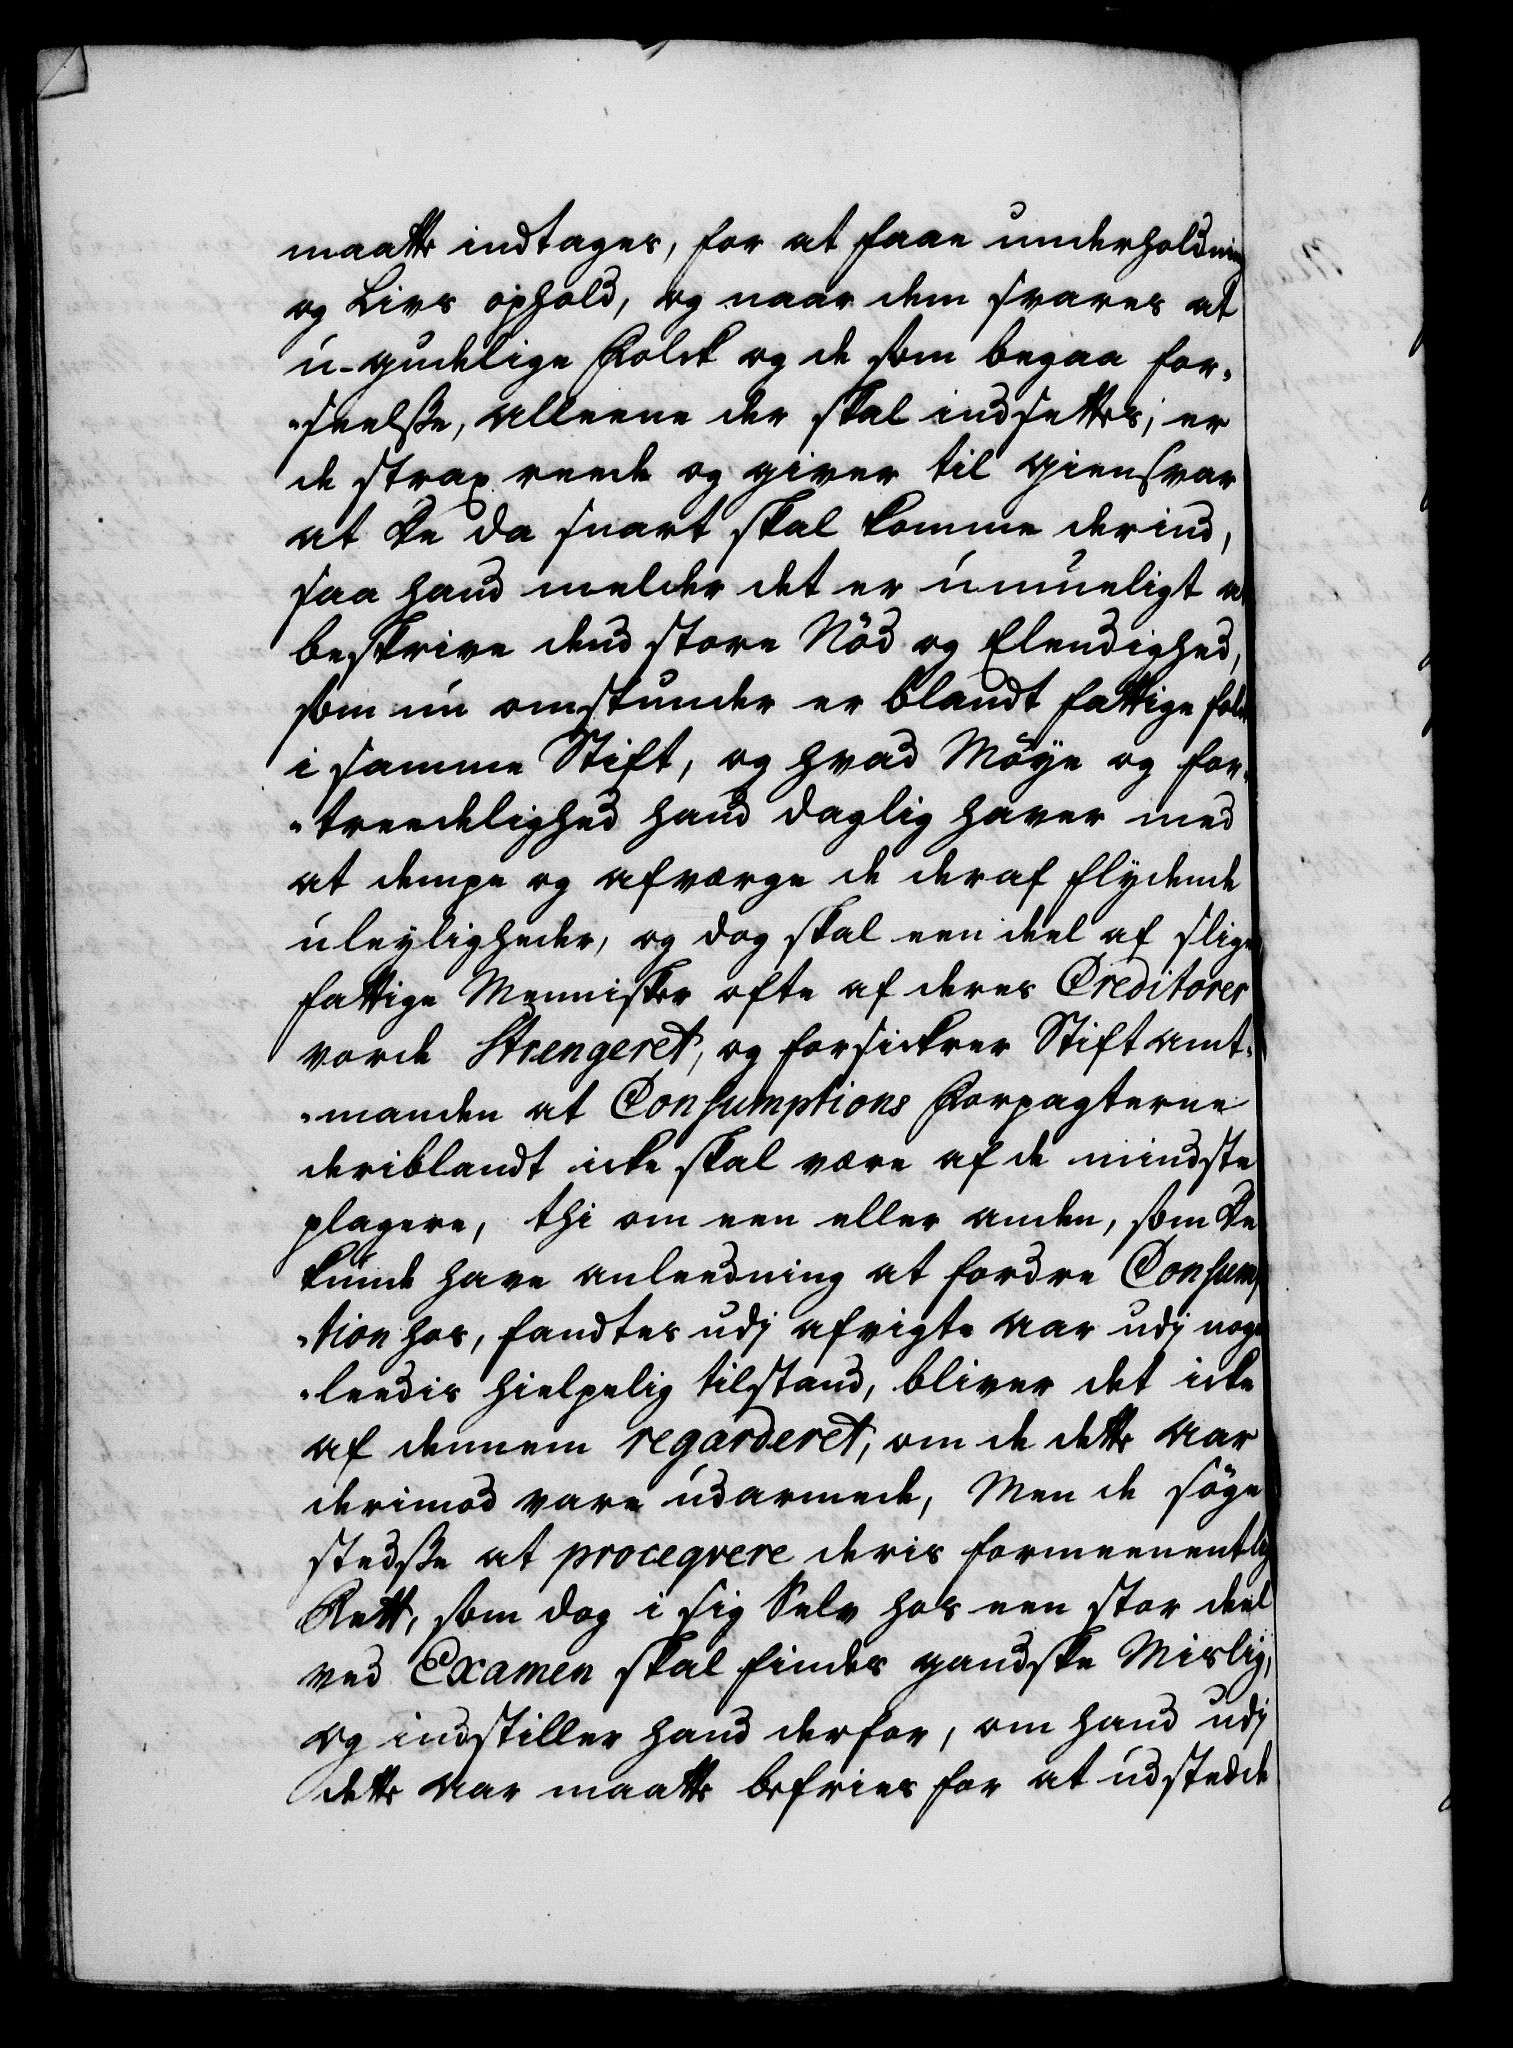 maatte indtages, for at faae underholdning
og Livs ophold, og naar dem svares at
u-gudelige Folck og de som begaa for-
-seelsse, alleene der skal indsettes, er
de strax reede og giver til giensvar
at De da snart skal komme derind,
saa hand melder det er umueligt at
beskrive dend store Nöd og Elendighed,
som nu omstunder er blandt fattige folck
i samme Stift, og hvad Möye og for-
-treedelighed hand daglig haver med
at dempe og afværge de deraf flydende
uleyligheder, og dog skal een deel af slige
fattige Mennisker ofte af deres Creditorer
vorde Strengeret, og forsickrer Stiftamt-
-manden at Consumptions Forpagterne
deriblandt icke skal være af de mindste
plagere, thi om een eller anden, som De
kunde have anleedning at fordre Consump-
-tion hos, fandtes udj afvigte aar udj noge-
-leedis hielpelig tilstand, bliver det icke
af dennem regarderet, om de dette aar
derimod vare udarmede, Men de söge
stedsse at proceqvere deris formeenentlig
Rett, som dog i sig Selv hos een stor deel
ved Examen skal findes gandske Mislig,
og indstiller hand derfor, om hand udj
dette aar maatte befries for at udstedde